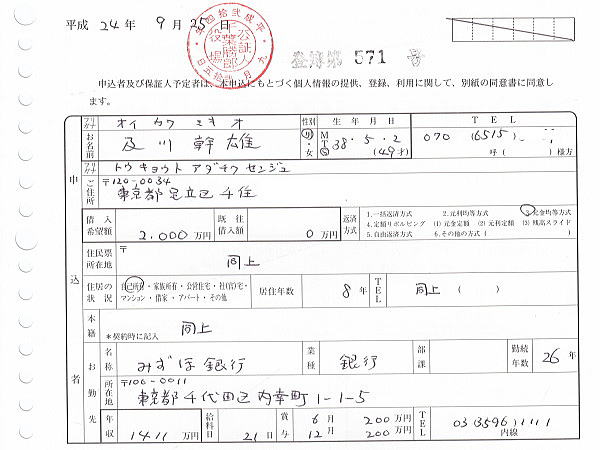 平成 24年 9月 25日
平成弐拾四年
公証人
千葉勝郎
役場
九月弐拾五日
第 571 号
申込者及び保証人予定者は、本申込にもとづく個人情報の提供、登録、利用に関して、別紙の同意書に同意し
ます。
申込者
フリガナ オイカワ ミキオ 性別 生年月日 TEL
お名前 及川 幹雄 男・女 M T S 38・5・2 (49才) 070 (6515)
呼( )様方
フリガナ トウキョウト アダチク センジュ
ご住所 〒120-0034
東京都 足立区 千住
借入希望額 2.000 万円 既往借入額 0 万円 返済方式 1.一括返済方式 2.元利均等方式 3.元金均等方式
4.定額リボルビング (1)元金定額 (2)元利定額 (3)残高スライド
5.自由返済方式 6.その他の方式( )
住民票所在地 〒
同上
住居の状況 自己所有・家族所有・公営住宅・社(官)宅・
マンション・借家・アパート・その他
居住年数 8年 TEL 同上 ( )
本籍 *契約時に記入 同上
お勤先 名称 みずほ銀行 業種 銀行 部課 勤続年数 26年
所在地 〒100-0011
東京都 千代田区 内幸町 1-1-5
年収 1411 万円 給料日 21日 賞与 6月 200万円
12月 200万円
TEL 03 (3596) 1111
内線